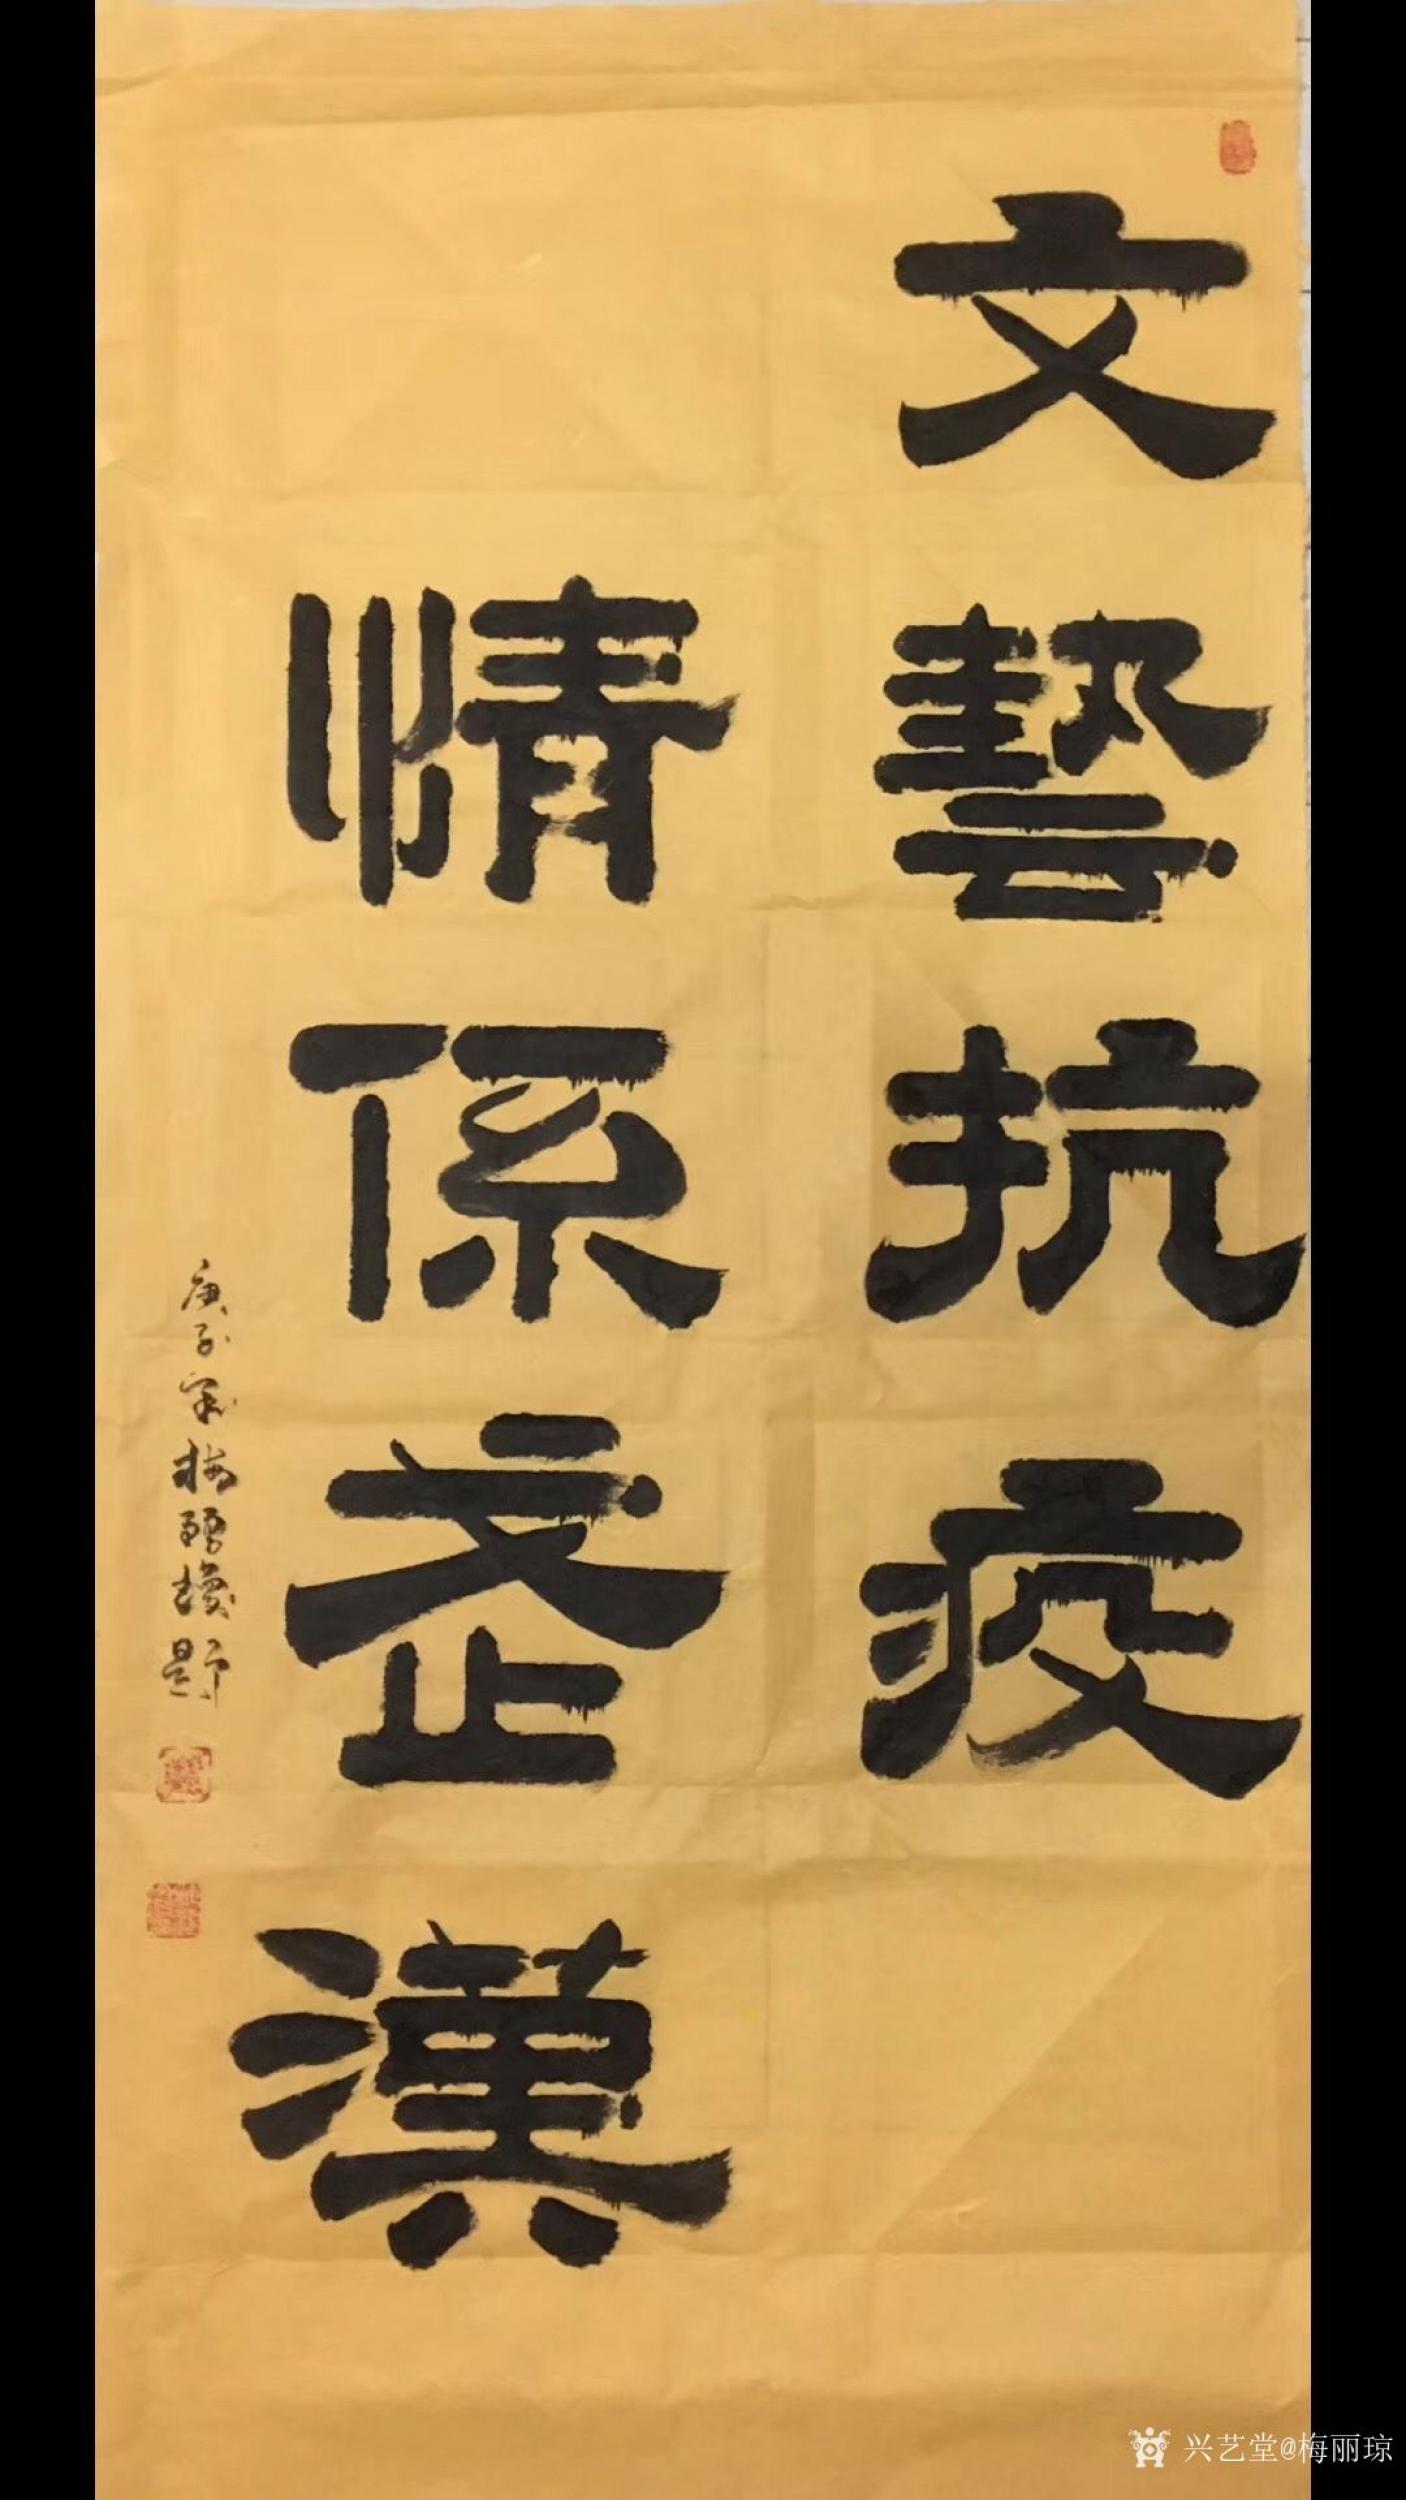 文藝抗疫
情係武漢
庚子梅麗瓊題
兴艺堂@梅丽琼